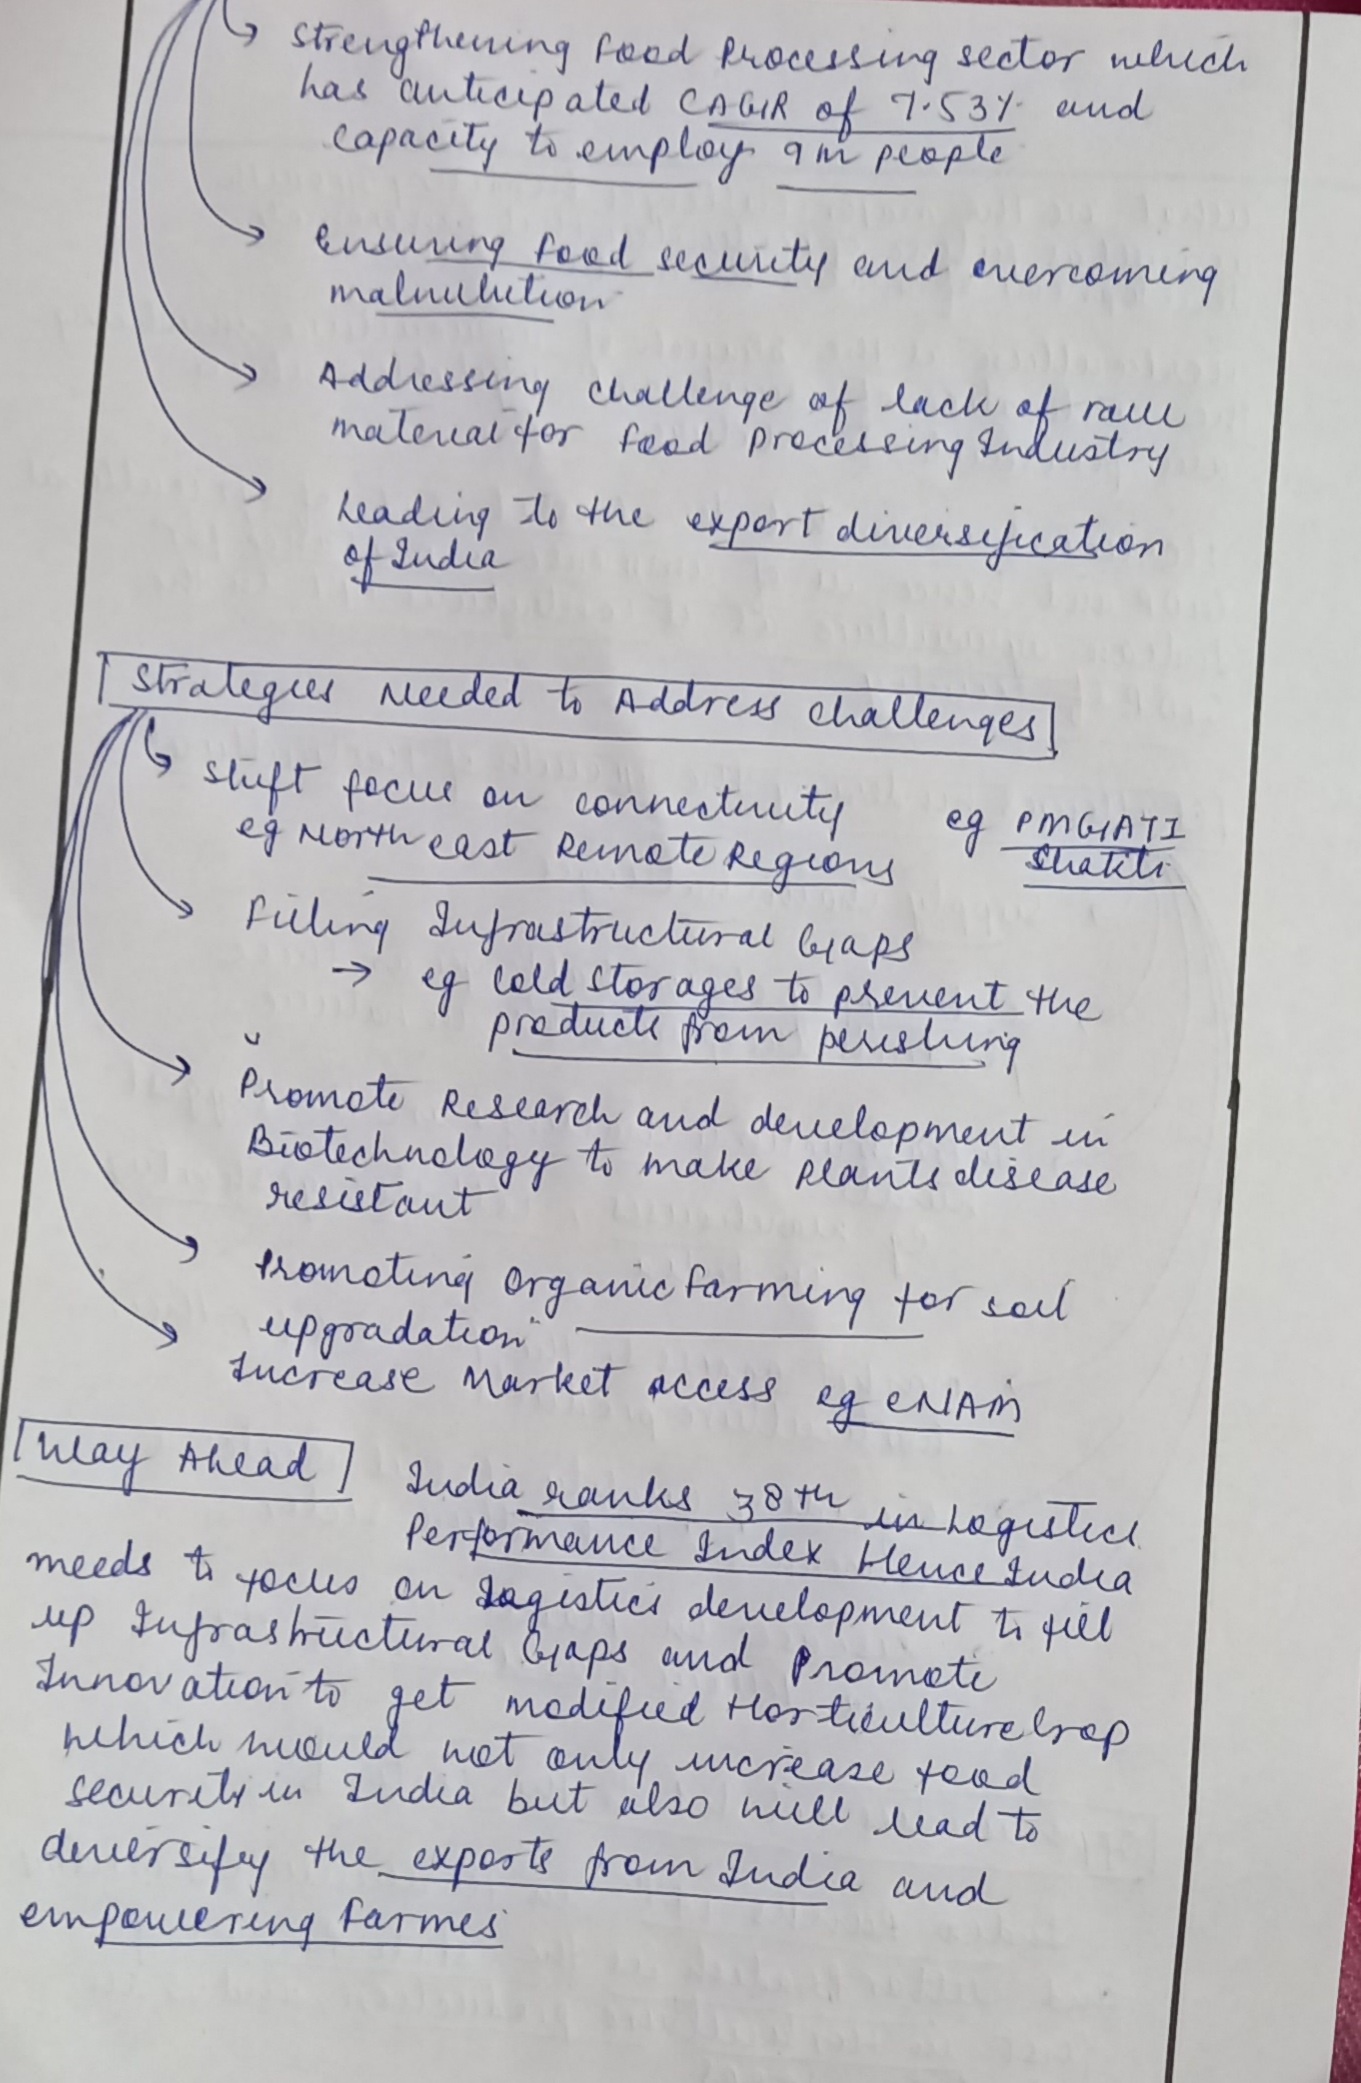 Strengthening Food Processing sector which
has anticipated CAGR of 7.53% and
capacity to employ 9m people
Ensuring food security and overcoming
malnutrition
Addressing challenge of lack of raw
material for food processing Industry
Leading to the export diversification
of India
Strategies Needed to Address Challenges
Shift focus on connectivity eg PMGATI
eg North east Remote Regions Shakti
Filling Infrastructural Gaps
→ eg Cold Storages to prevent the
products from perishing
Promote Research and development in
Biotechnology to make plants disease
resistant
Promoting Organic farming for soil
upgradation
Increase Market access eg eNAM
Way Ahead
India ranks 38th in Logistics
Performance Index Hence India
needs to focus on Logistics development to fill
up Infrastructural Gaps and Promote
Innovation to get modified Horticulture Crop
which would not only increase food
security in India but also will lead to
diversify the exports from India and
empowering farmes